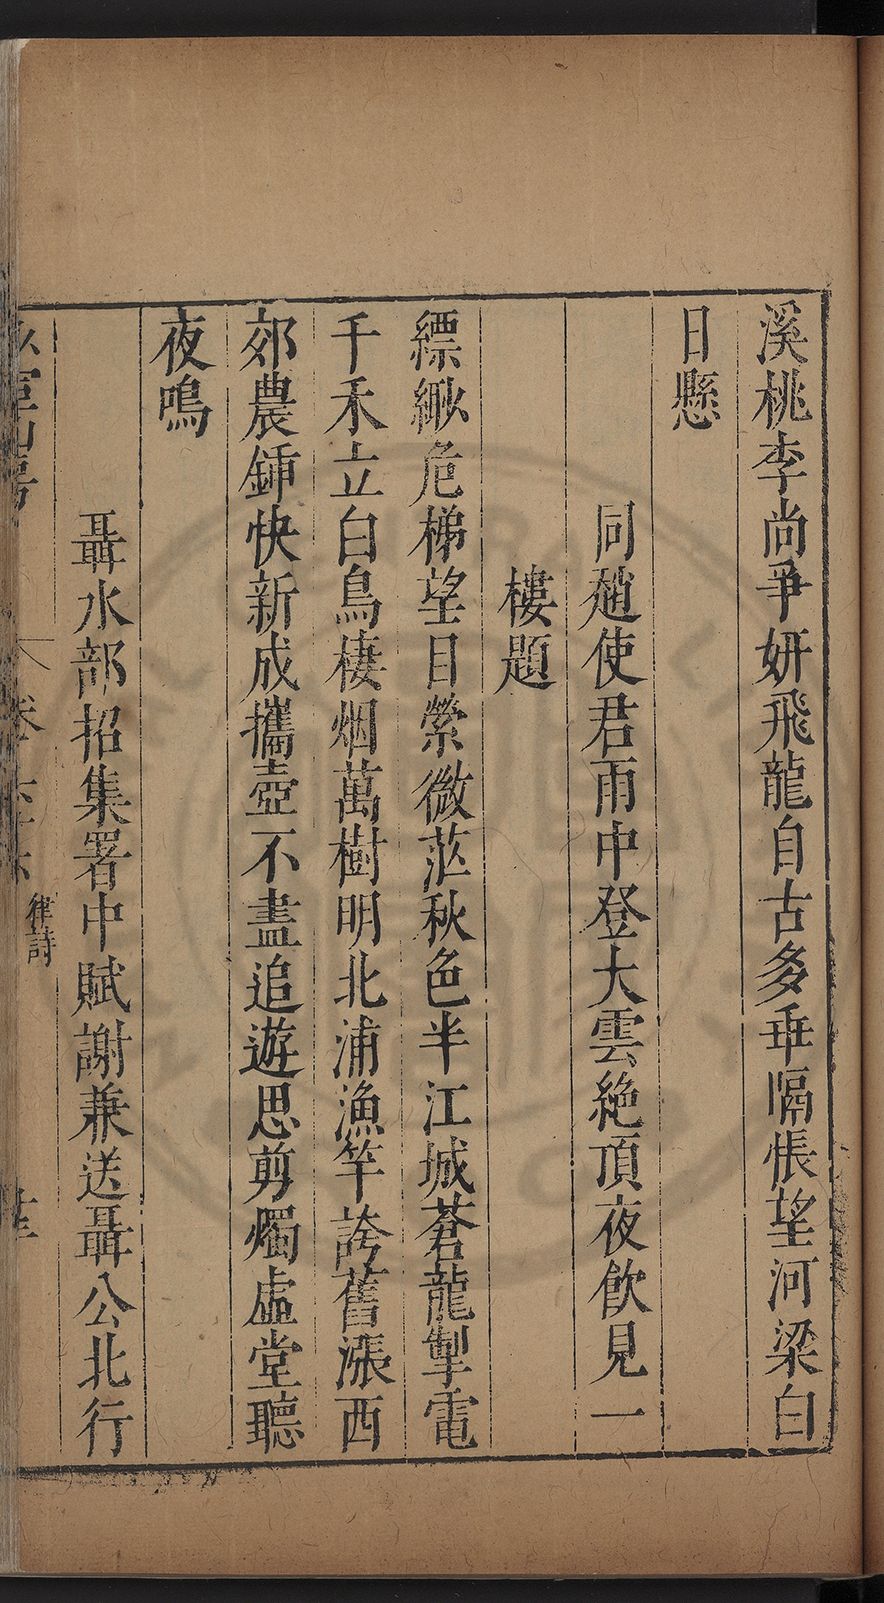 溪桃李尚爭妍飛龍自古多垂隔悵望河梁白
日懸
同趙使君雨中登大雲絶頂夜飲見一
樓題
縹緲危梯望目縈微茫秋色半江城蒼龍掣電
千禾立白鳥棲烟萬樹明北浦漁竿誇舊漲西
郊農鍤快新成攜壺不盡追遊思剪燭虛堂聽
夜鳴
聶水部招集署中賦謝兼送聶公北行
山房
律詩